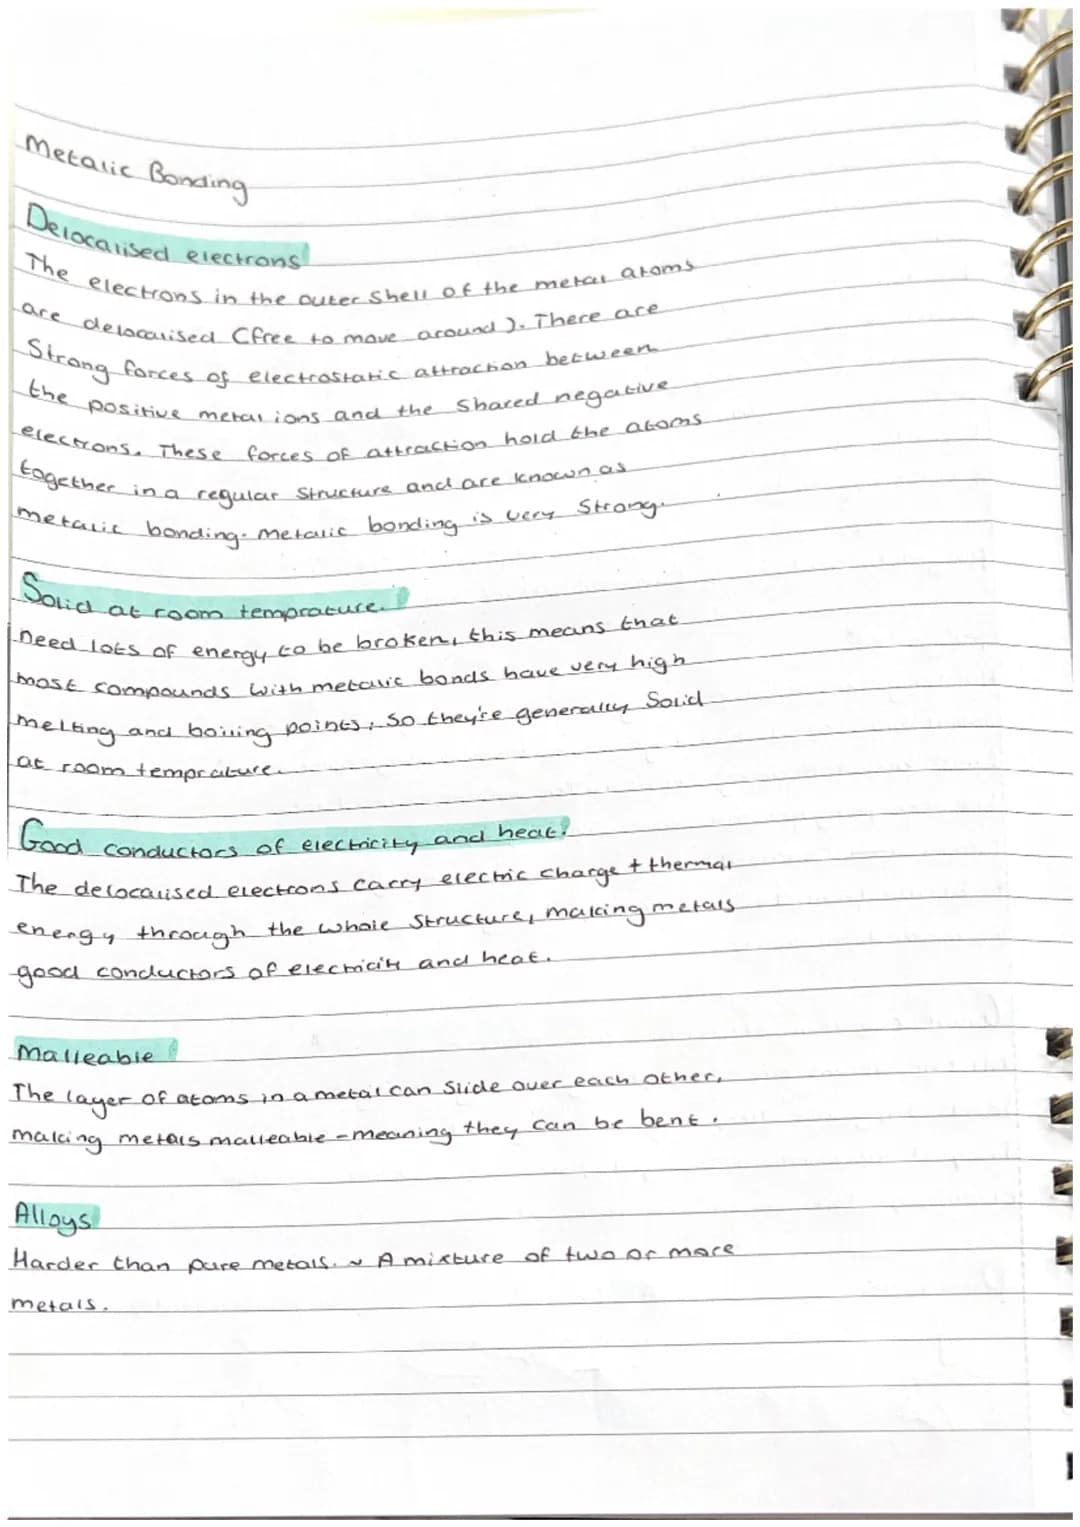 Metalic Bonding
Delocalised electrons
The electrons in the outer shell of the metal atoms
are delocalised (free to move around). There are
Strong forces of electrostatic attraction between
the positive metal ions and the shared negative
electrons. These forces of attraction hold the atoms
together in a regular structure and are known as
metalic bonding. Metalic bonding is very strong.
Solid at room temprature.
need lots of energy to be broken, this means that
most compounds with metalic bonds have very high
melting and boiling points, so they're generally Solid
at room temprature.
Good conductors of electricity and heat.
The delocalised electrons carry electric charge + thermal
energy through the whole structure, making metals
good conductors of electricity and heat.
Malleable
The layer of atoms in a metal can slide over each other,
making metals malleable - meaning they can be bent.
Alloys
Harder than pure metals. ~ A mixture of two or more
metals.